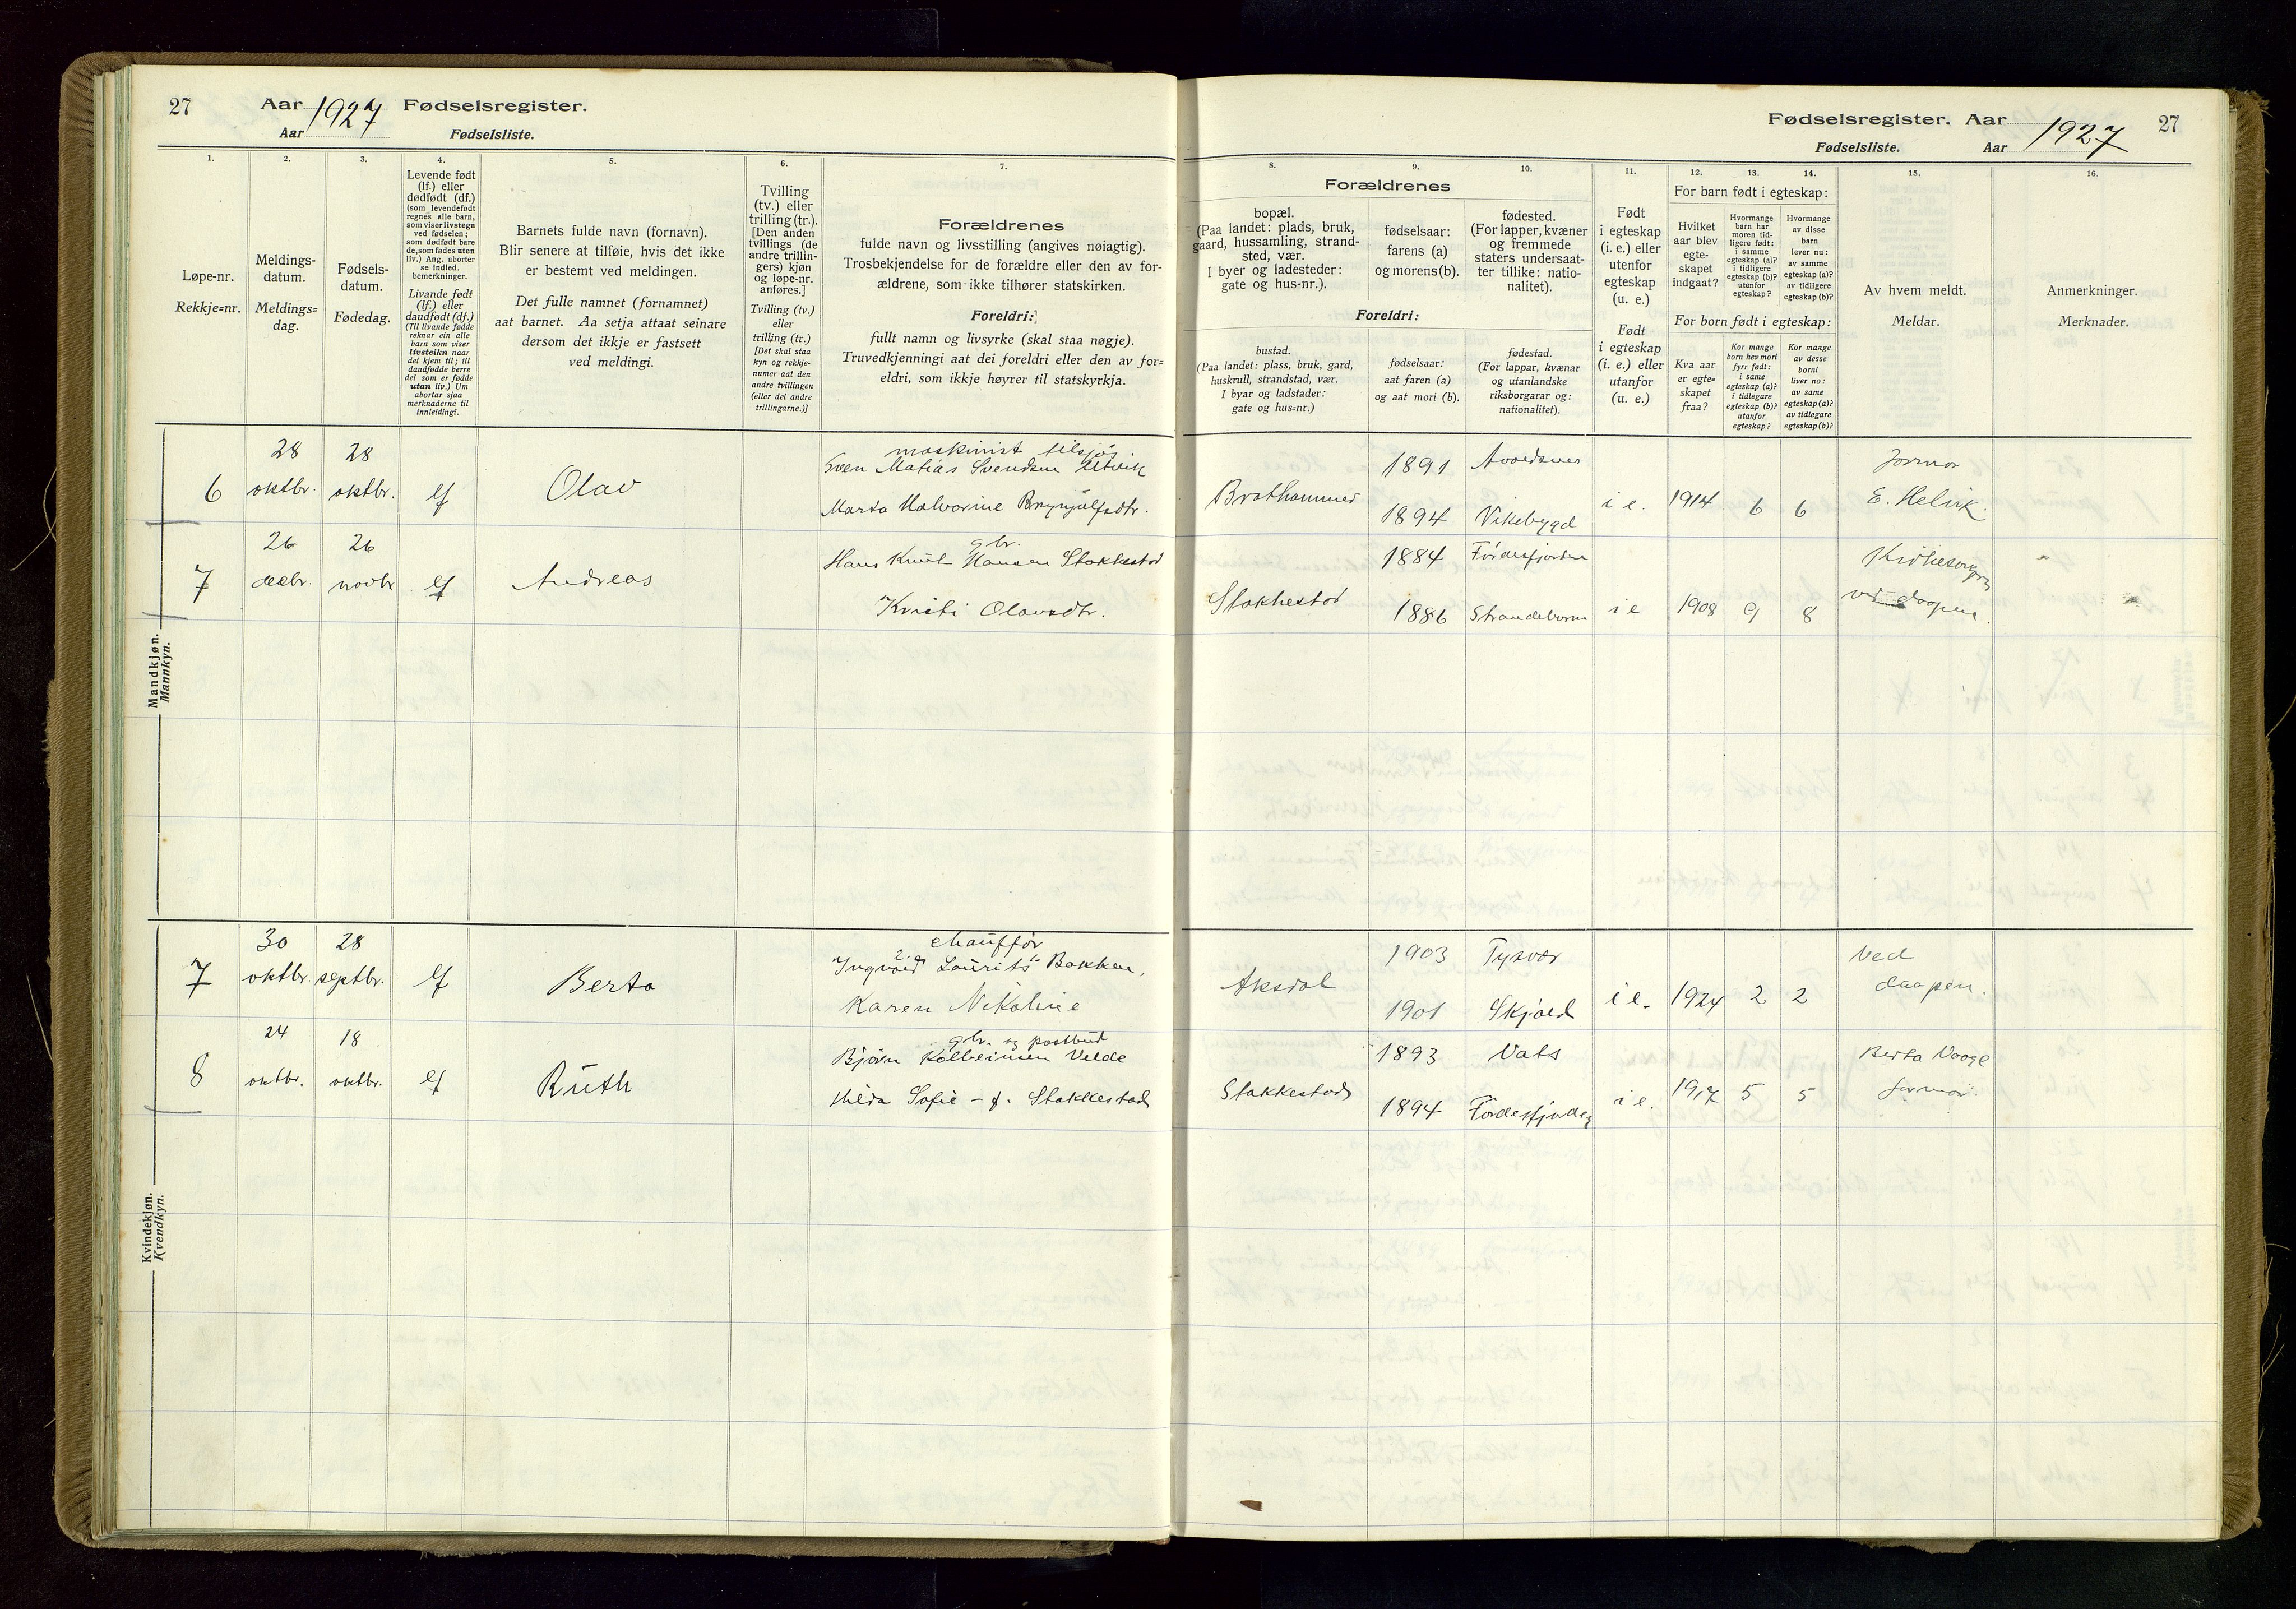 27
Aar 1927 Fødselsregister.
Aar Fødselsliste.
Fødselsregister. Aar 1927 27
Fødselsliste. Aar
1. 2. 3. 4. 5. 6. 7.
Løpe-nr.
Rekkje=nr.
Meldings-
datum.
Meldings=
dag.
Fødsels-
datum.
Fødedag.
Levende født
(lf.) eller
dødfødt (df.)
(som levendefødt
regnes alle barn,
som viser livstegn
ved fødselen;
som dødfødt bare
de, som fødes uten
liv.) Ang. aborter
se indled.
bemerkning.
Livande født
(lf.) eller
daudfødt (df.)
(Til livande fødde
reknar ein alle
barn som viser
livsteikn naar
dei kjem til; til
daudfødde berre
dei som er fødde
utan liv.) Um
abortar sjaa
merknaderne til
innleidingi.
Barnets fulde navn (fornavn).
Blir senere at tilføie, hvis det ikke
er bestemt ved meldingen.
Det fulle namnet (fornamnet)
aat barnet. Aa setja attaat seinare
dersom det ikkje er fastsett
ved meldingi.
Tvilling
(tv.) eller
trilling (tr.).
[Den anden
tvillings (de
andre trillin-
gers) kjøn
og løpe-nr.
anføres.]
Tvilling (tv.)
eller
trilling (tr.)
[Det skal staa
kyn og rekkje-
numer aat den
andre tvillingen
(eller dei andre
trillingarne.)]
Forældrenes
fulde navn og livsstilling (angives nøiagtig).
Trosbekjendelse for de forældre eller den av for-
ældrene, som ikke tilhører statskirken.
Foreldri:
fullt namn og livsyrke (skal staa nøgje).
Truvedkjenningi aat dei foreldri eller den av for=
eldri, som ikkje høyrer til statskyrkja.
8. 9. 10. 11. 12. 13. 14. 15. 16.
Forældrenes
bopæl.
(Paa landet: plads, bruk,
gaard, hussamling, strand-
sted, vær.
I byer og ladesteder:
gate og hus-nr.).
fødselsaar:
farens (a)
og morens (b).
fødested.
(For lapper, kvæner
og fremmede
staters undersaat-
ter tillike: natio-
nalitet).
Foreldri:
bustad.
(Paa landet: plass, bruk, gard,
huskrull, strandstad, vær.
I byar og ladstader:
gate og hus-nr.)
fødselsaar:
aat faren (a)
og aat mori (b).
fødestad.
(For lappar, kvænar
og utanlandske
riksborgarar og:
nationalitet).
Født
i egteskap
(i. e.) eller
utenfor
egteskap
(u. e.)
Født
i egteskap
(i. e.) eller
utanfor
(u. e.)
For barn født i egteskap:
Hvilket
aar blev
egte-
skapet
indgaat?
Hvormange
barn har
moren tid-
ligere født:
i samme
egteskap (a)?
i tidligere
egteskap (b)?
utenfor
egteskap?
Hvormange
av disse
barn
lever nu:
av samme
egteskap (a)?
av tidligere
egteskap (b)?
For born født i egteskap:
Kva aar
er egte=
skapet
fraa?
Kor mange
born hev mori
fyrr født:
i same
egteskap (a)?
i tidlegare
egteskap (b)?
utanfor
egteskap?
Kor mange
av desse
borni
liver no:
av same
egteskap (a)?
av tidlegare
egteskap (b)?
Av hvem meldt.
Meldar.
Anmerkninger.
Merknader.
Mandkjøn.
Mannkyn.
28 28 maskinist tilsjøs 1891 Avaldsnes Jormor
6 oktbr. oktbr. lf Olav Sven Matias Svendsen Utvik Brathammer i e. 1914 6 6 E. Helvik.
Marta Halvorine Brynjulfsdtr. 1894 Vikebygd
26 26 gbr. 1884 Førdesfjorden
7 decbr. novbr lf Andreas Hans Knut Hansen Stakkestad Stakkestad i e 1908 9 8 ved daapen.
Kristi Olavsdtr. 1886
Kvindekjøn.
Kvendkyn.
30 28 chauffør 1903 Tysvær Ved
7 oktbr. septbr. lf Berta Ingvald Laurits Bakken, Aksdal i e. 1924 2 2 daapen.
Karen Nikoline 1901 Skjold
24 18 gbr. og postbud 1893 Vats Berta Vaage
8 oktbr. oktbr. lf Ruth Bjørn Kolbeinsen Velde Stakkestad i e. 1917 5 5 jormor.
Hilda Sofie - f. Stakkestad 1894